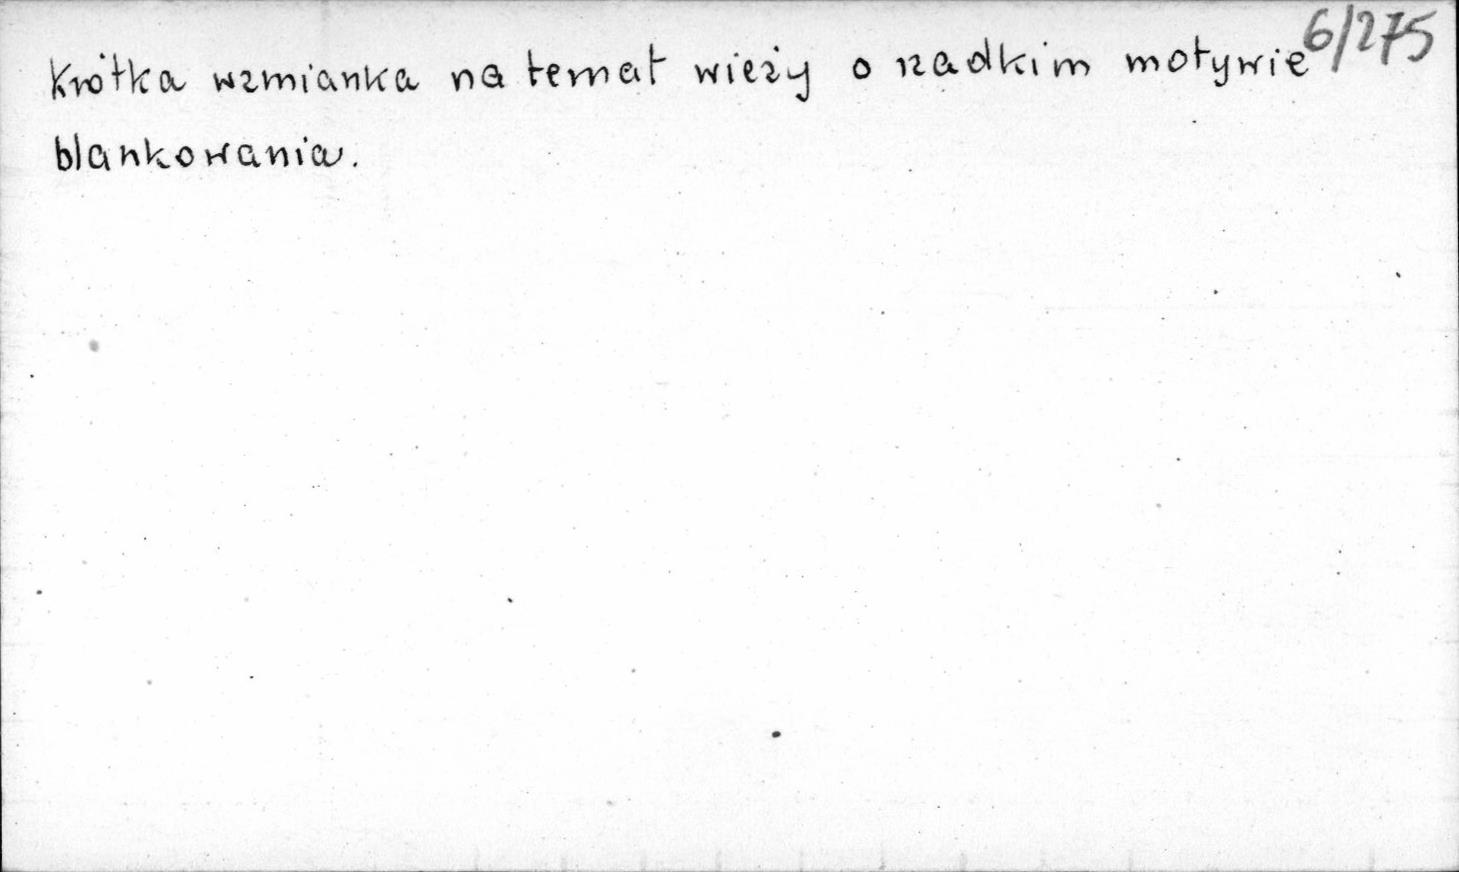 6/275
Krótka wzmianka na temat wieży o rzadkim motywie
blankowania.